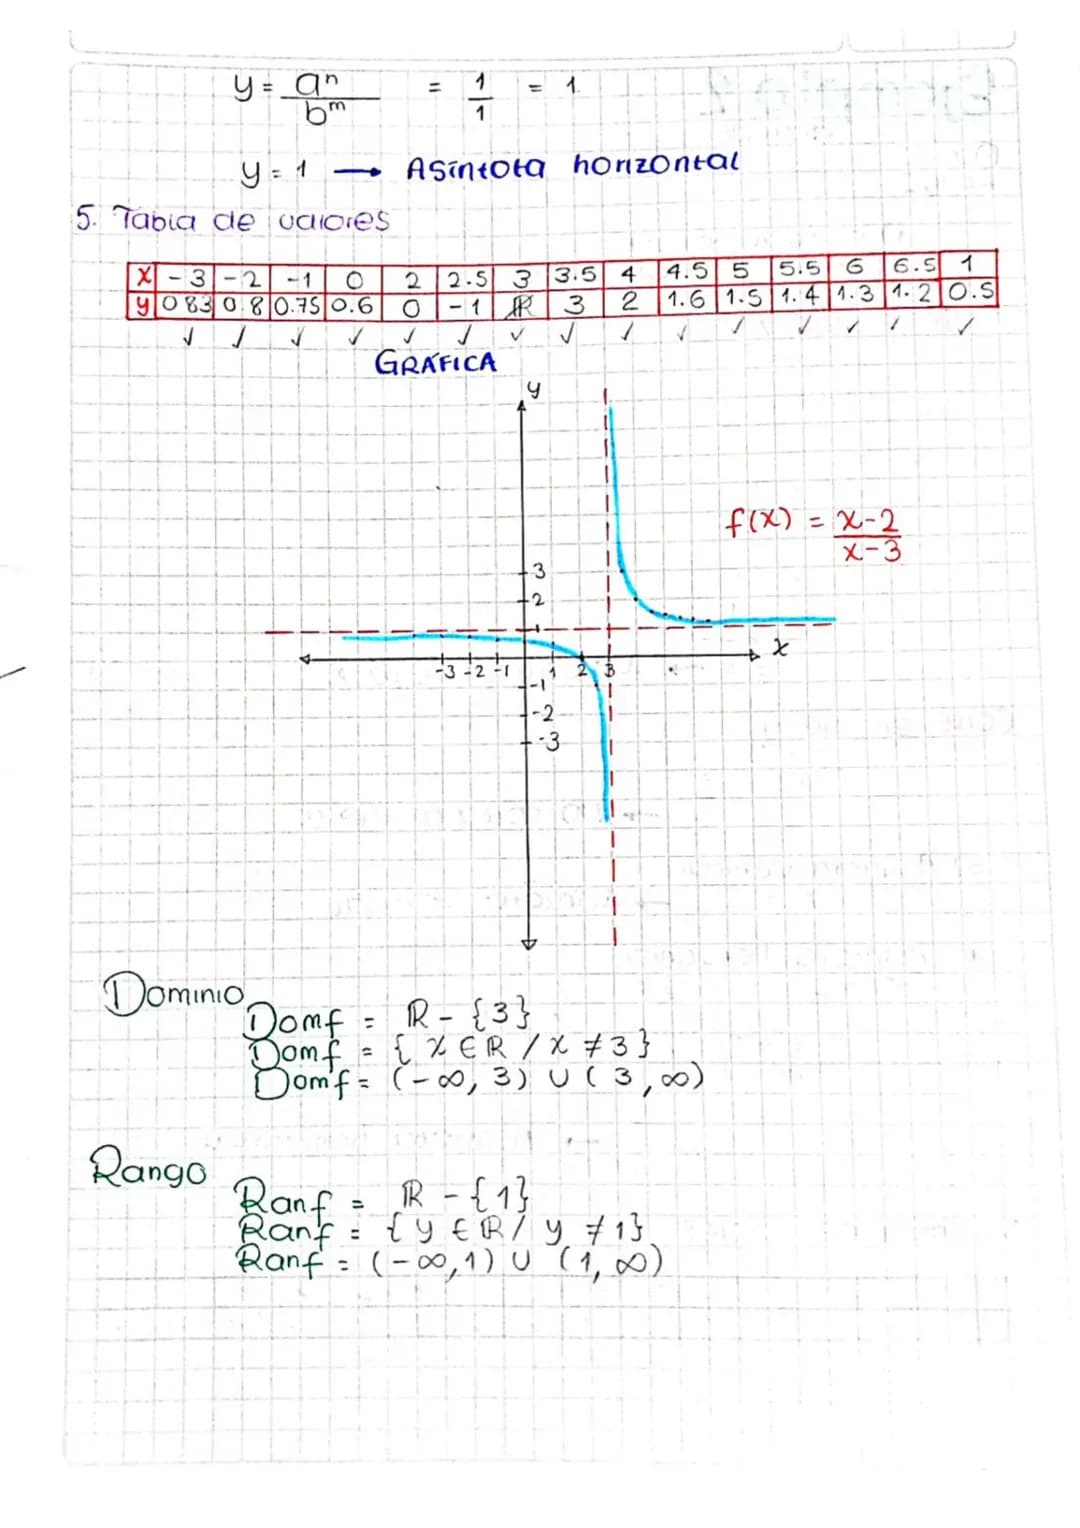 y = aⁿ/bᵐ = 1/1 = 1
y = 1 → Asíntota horizontal
5. Tabla de valores
x -3 -2 -1 0 2 2.5 3 3.5 4 4.5 5 5.5 6 6.5 1
y 0.83 0.8 0.75 0.6 0 -1 ℝ 3 2 1.6 1.5 1.4 1.3 1.2 0.5
✓ ✓ ✓ ✓ ✓ ✓ ✓ ✓ ✓ ✓ ✓ ✓ ✓ ✓ ✓
GRÁFICA
y
f(x) = x-2/x-3
3
2
1
x
-3 -2 -1 1 2 3
-1
-2
-3
Dominio
Domf = ℝ - {3}
Domf = { x ∈ ℝ / x ≠ 3 }
Domf = (-∞, 3) ∪ (3, ∞)
Rango
Ranf = ℝ - {1}
Ranf = { y ∈ ℝ / y ≠ 1 }
Ranf = (-∞, 1) ∪ (1, ∞)